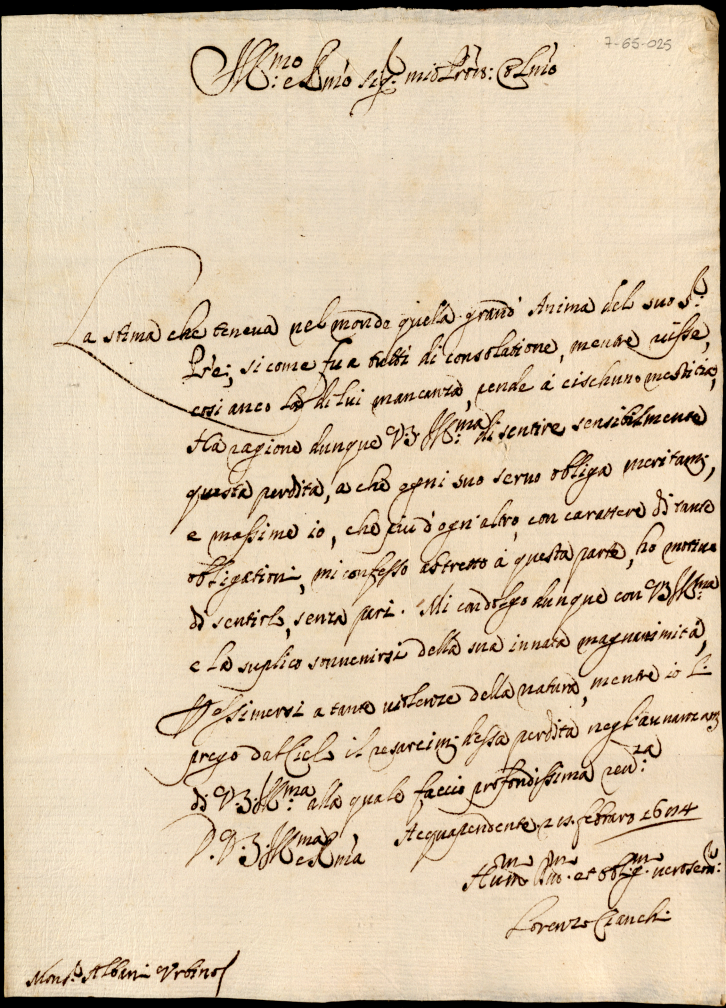 7-65-025
Ill:mo e R.mo Sig.r mio Pron: Col.mo
La stima che teneua nel mondo quella grand' Anima del suo S.r
P're, si come fu a tutti di consolatione, mentre uisse,
cosi anco la di lui mancanza, rende à cischuno mestitia,
Hà ragione dunque V.S. Ill:ma di sentire sensibilmente
questa perdita, a che ogni suo seruo obliga
e massime io, che più d'ogn'altro, con carattere di tante
obligationi, mi confesso astretto à questa parte, ho motiuo
di sentirla, senza pari. Mi condolgo dunque con V.S. Ill:ma
e la suplico souuenirsi della sua innata magnanimità,
a tante uiolenze della natura, mentre io
prego dal Cielo il resarcim: dessa perdita negl'auanzam:
di V.S. Ill:ma alla quale faccio profondissima reu:za
D. V.S. Ill:ma e R.ma Acquapendente febraro 1684
Hum.mo et oblig.mo uero ser:re
Lorenzo
Mons.r Albani Vrbino